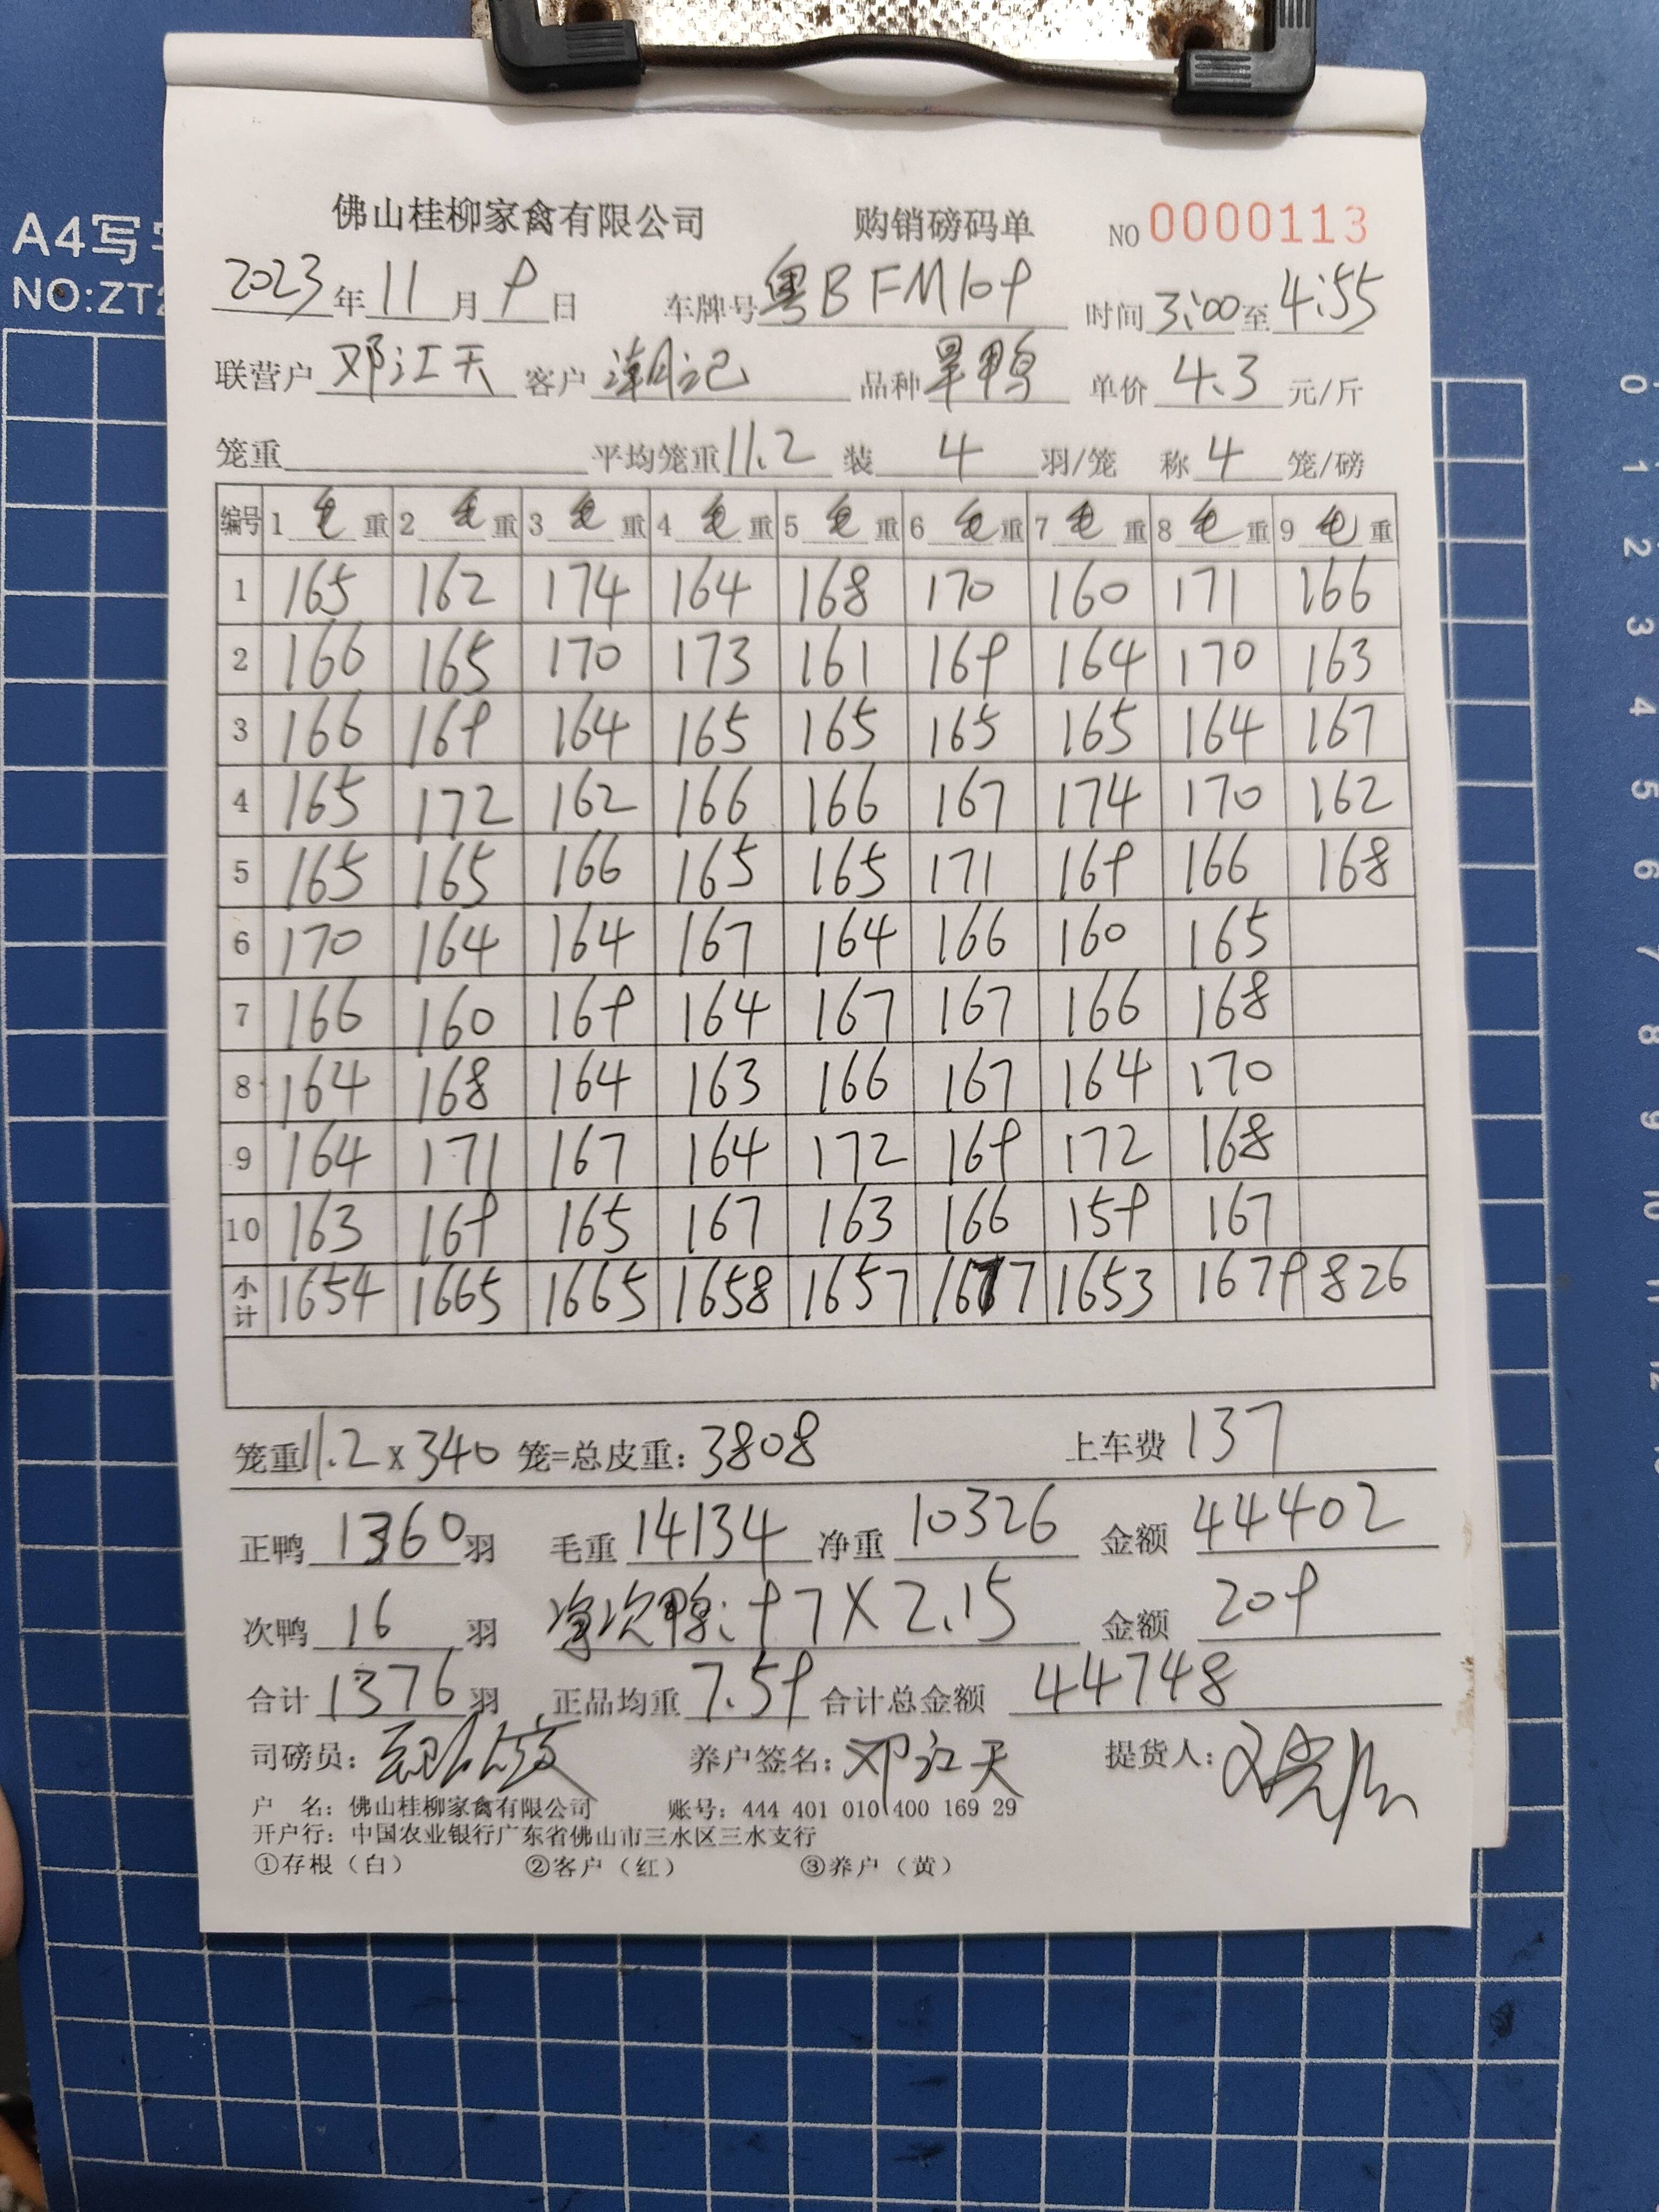 A4写
NO:ZT
佛山桂柳家禽有限公司 购销磅码单 NO 0000113
2023年11月9日 车牌号粤BFM109 时间3:00至4:55
联营户 邓江天 客户 潮记 品种 旱鸭 单价 4.3 元/斤
笼重 平均笼重11.2 装 4 羽/笼 称 4 笼/磅
编号 1 毛 重 2 毛 重 3 毛 重 4 毛 重 5 毛 重 6 毛 重 7 毛 重 8 毛 重 9 毛 重
1 165 162 174 164 168 170 160 171 166
2 166 165 170 173 161 169 164 170 163
3 166 169 164 165 165 165 165 164 167
4 165 172 162 166 166 167 174 170 162
5 165 165 166 165 165 171 169 166 168
6 170 164 164 167 164 166 160 165
7 166 160 169 164 167 167 166 168
8 164 168 164 163 166 167 164 170
9 164 171 167 164 172 169 172 168
10 163 169 165 167 163 166 159 167
小计 1654 1665 1665 1658 1657 1677 1653 1679 826
笼重11.2x340 笼=总皮重:3808 上车费 137
正鸭 1360 羽 毛重 14134 净重 10326 金额 44402
次鸭 16 羽 净次鸭:97X2.15 金额 209
合计 1376 羽 正品均重 7.59 合计总金额 44748
司磅员: 养户签名:邓江天 提货人:
户 名: 佛山桂柳家禽有限公司 账号: 444 401 010 400 169 29
开户行: 中国农业银行广东省佛山市三水区三水支行
①存根（白） ②客户（红） ③养户（黄）
0
1
2
3
4
5
6
7
8
9
10
11
12